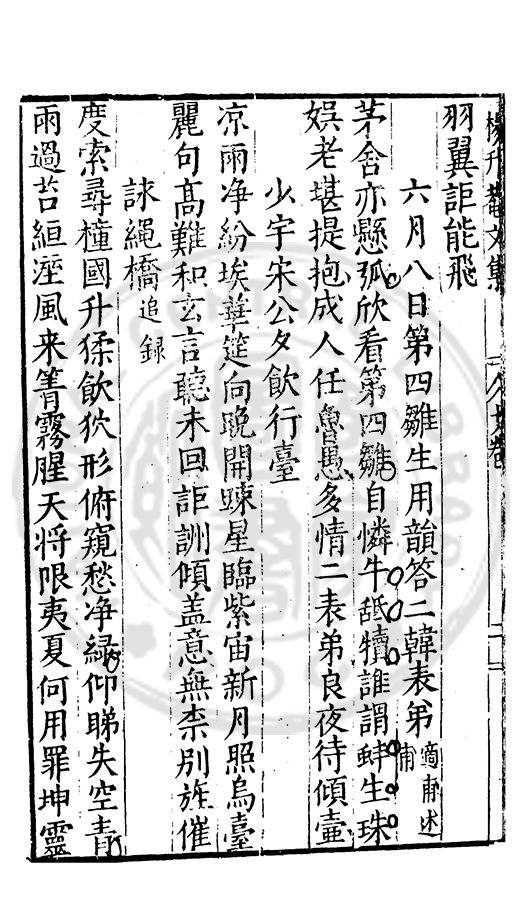 楊升菴文集
羽翼詎能飛
六月八日第四雛生用韻答二韓表弟適甫述甫
茅舍亦懸弧欣看第四雛自憐牛舐犢誰謂蚌生珠
娯老堪提抱成人任魯愚多情二表弟良夜待傾壷
少宇宋公夕飲行臺
凉雨净紛埃華筵向晚開踈星臨紫宙新月照烏臺
麗句髙難和玄言聽未回詎訓傾盖意無柰別旌催
詠䋲橋追録
度索尋橦國升猱飲狖形俯窺愁净緑仰睇失空青
雨過苔絙溼風来箐霧腥天将限夷夏何用罪坤靈